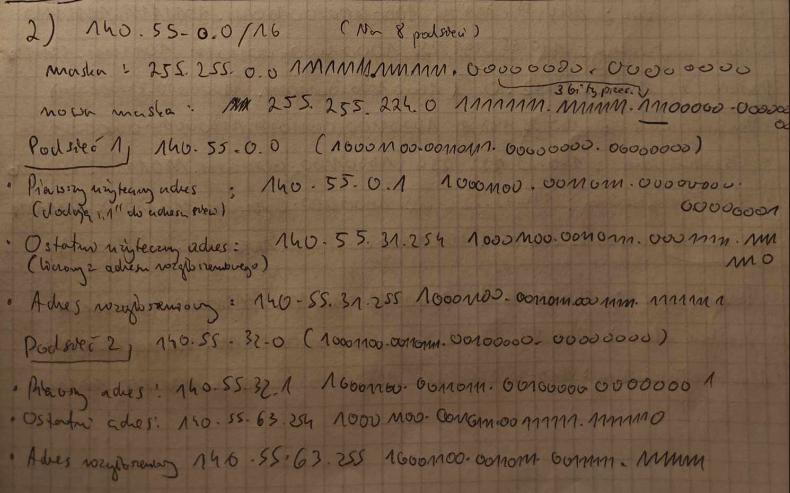 2) 140.55.0.0/16 (Na 8 podsieci)
maska: 255.255.0.0 11111111.11111111.00000000.00000000
3 bity pierw.
nowa maska: 255.255.224.0 11111111.11111111.11100000.00000000
Podsieć 1, 140.55.0.0 (10001100.00110111.00000000.00000000)
• Pierwszy użyteczny adres: 140.55.0.1 10001100.00110111.00000000.
(dodaję „1" do adresu sieci) 00000001
• Ostatni użyteczny adres: 140.55.31.254 10001100.00110111.00011111.11111110
(liczony z adresu rozgłoszeniowego)
• Adres rozgłoszeniowy: 140.55.31.255 10001100.00110111.00011111.11111111
Podsieć 2, 140.55.32.0 (10001100.00110111.00100000.00000000)
• Pierwszy adres: 140.55.32.1 10001100.00110111.00100000 00000001
• Ostatni adres: 140.55.63.254 10001100.00110111.00111111.11111110
• Adres rozgłoszeniowy 140.55.63.255 10001100.00110111.00111111.11111111